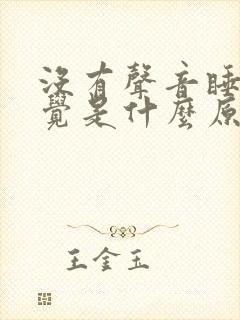 沒有聲音睡
覺是什麼原
王金玉